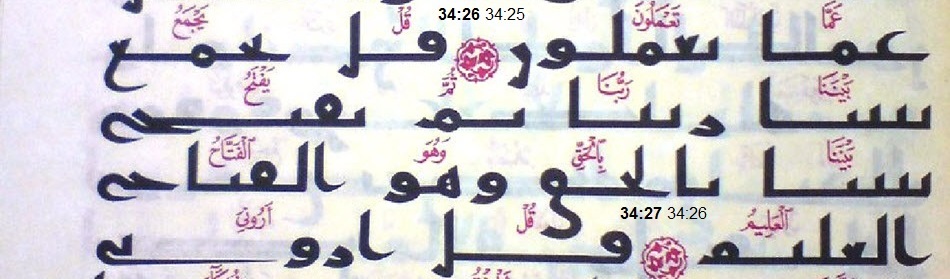 34:26 34:25
عَمَّا تَعْمَلُونَ قُلْ يَجْمَعُ
عما تعملون قل يجمع
بَيْنَنَا رَبُّنَا ثُمَّ يَفْتَحُ
بيننا ربنا ثم يفتح
بَيْنَنَا بِالْحَقِّ وَهُوَ الْفَتَّاحُ
بيننا بالحق وهو الفتاح
34:27 34:26
الْعَلِيمُ قُلْ أَرُونِيَ
العليم قل اروني